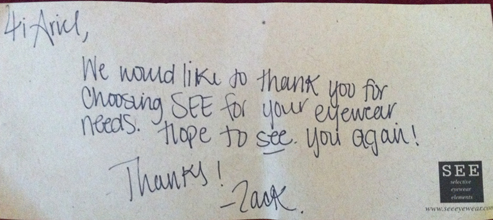 Hi Ariel,
We would like to thank you for
choosing SEE for your eyewear
needs. Hope to see you again!
Thanks!
-Zack.
SEE
selective
eyewear
elements
www.seeeyewear.com